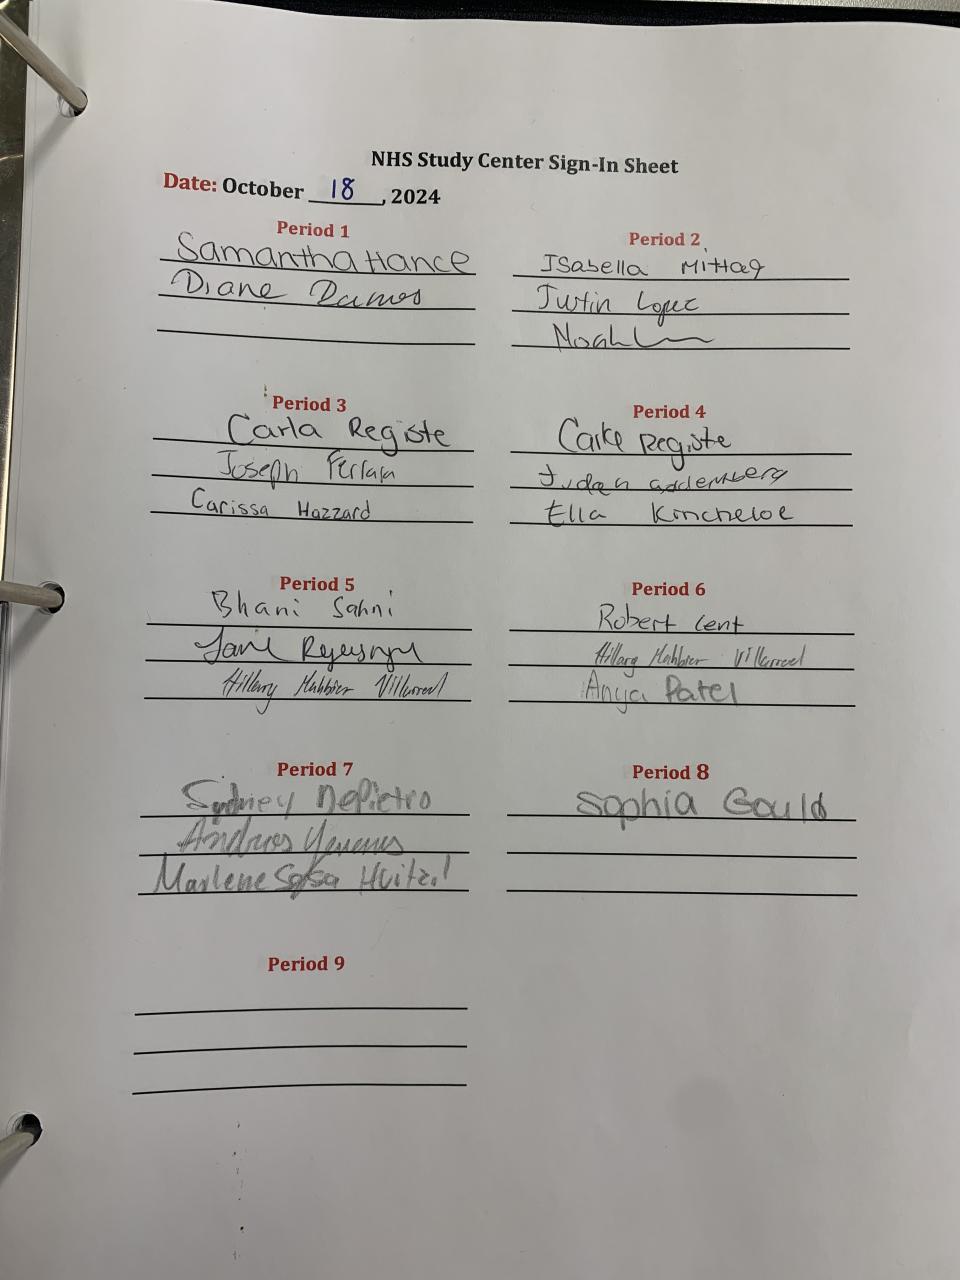 NHS Study Center Sign-In Sheet
Date: October 18, 2024
Period 1
Samantha Hance
Diane Dumas
Period 2
Isabella Mittag
Justin Lopez
Noah
Period 3
Carla Registe
Joseph Ferrara
Carissa Hazzard
Period 4
Registe
Ella Kincheloe
Period 5
Bhani Sahni
Hillary Mahbier Villarreal
Period 6
Robert Cent
Hillary Mahbier Villarreal
Anya Patel
Period 7
Sydney DePietro
Andres
Marlene Sosa Huitzil
Period 8
Sophia Gould
Period 9